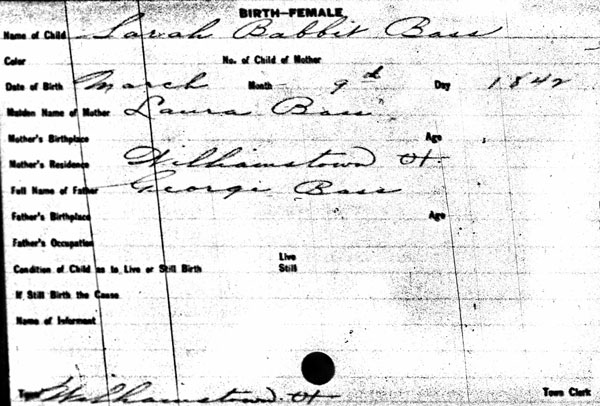 BIRTH—FEMALE
Name of Child Sarah Babbit Bass
Color No. of Child of Mother
Date of Birth March Month 9th Day 1842
Maiden Name of Mother Laura Bass
Mother's Birthplace Age
Mother's Residence Williamstown Vt
Full Name of Father George Bass
Father's Birthplace Age
Father's Occupation
Condition of Child as to Live or Still Birth Live
Still
If Still Birth the Cause
Name of Informant
Town Williamstown Vt Town Clerk